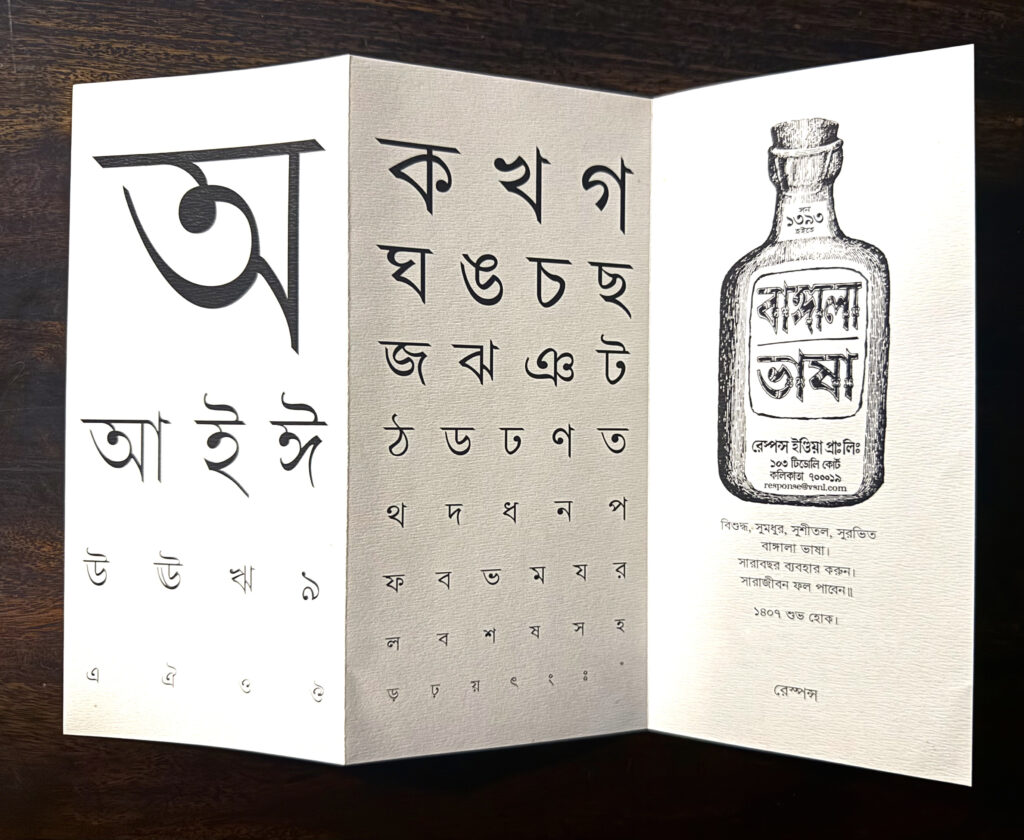 অ
আ ই ঈ
উ ঊ ঋ ঌ
এ ঐ ও ঔ
ক খ গ
ঘ ঙ চ ছ
জ ঝ ঞ ট
ঠ ড ঢ ণ ত
থ দ ধ ন প
ফ ব ভ ম য র
ল ব শ ষ স হ
ড় ঢ় য় ৎ ং ঃ ঁ
সন
১৩৯৩
হইতে
বাঙ্গালা
ভাষা
রেস্পন্স ইণ্ডিয়া প্রাঃলিঃ
১০৩ টিভোলি কোর্ট
কলিকাতা ৭০০০১৯
response@vsnl.com
বিশুদ্ধ, সুমধুর, সুশীতল, সুরভিত
বাঙ্গালা ভাষা।
সারাবছর ব্যবহার করুন।
সারাজীবন ফল পাবেন॥
১৪০৭ শুভ হোক।
রেস্পন্স